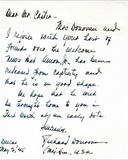 Dear Mr. Carter -
Mrs. Donovan and
I rejoice with your host of
friends over the welcome
news that Amon Jr. has been
released from captivity and
that he is in good shape.
We hope that he will
be brought home to you in
at an early date
Sincerely,
Richard Donovan
May 3, '45
U.S.A.